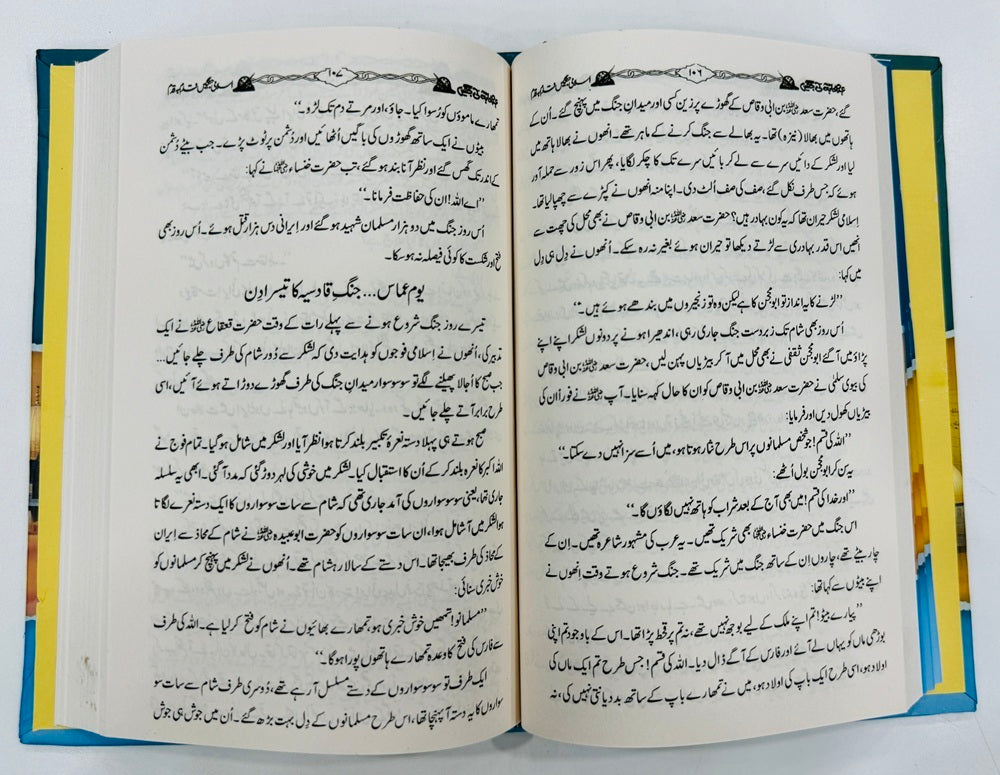 ۱۰۶
گئے، حضرت سعد رضی اللہ عنہ بن ابی وقاص کے گھوڑے پر زین کسی اور میدانِ جنگ میں پہنچ گئے۔ اُن کے
ہاتھوں میں بھالا (نیزہ) تھا۔ یہ بھالے سے جنگ کرنے کے ماہر تھے۔ انھوں نے بھالا ہاتھ میں
لیا اور لشکر کے دائیں سرے سے لے کر بائیں سرے تک کا چکر لگایا، پھر اس زور سے حملہ آور
ہوئے کہ جس طرف نکل گئے، صف کی صف اُلٹ دی۔ اپنا منہ انھوں نے کپڑے سے چھپا لیا تھا۔
اِسلامی لشکر حیران تھا کہ یہ کون بہادر ہیں؟ حضرت سعد رضی اللہ عنہ بن ابی وقاص نے بھی محل کی چھت سے
اُنھیں اس قدر بہادری سے لڑتے دیکھا تو حیران ہوئے بغیر نہ رہ سکے۔ اُنھوں نے دِل ہی دِل
میں کہا:
”لڑنے کا یہ انداز تو ابو محجن کا ہے لیکن وہ تو زنجیروں میں بندھے ہوئے ہیں۔“
اُس روز بھی شام تک زبردست جنگ جاری رہی، اندھیرا ہونے پر دونوں لشکر اپنے اپنے
پڑاؤ میں آ گئے ابو محجن ثقفی نے بھی محل میں آ کر بیڑیاں پہن لیں، حضرت سعد رضی اللہ عنہ بن ابی وقاص
کی بیوی سلمٰی نے حضرت سعد رضی اللہ عنہ بن ابی وقاص کو ان کا حال کہہ سنایا۔ آپ رضی اللہ عنہ نے فوراً ان کی
بیڑیاں کھول دیں اور فرمایا:
”اللہ کی قسم! جو شخص مسلمانوں پر اس طرح نثار ہوتا ہو، میں اُسے سزا نہیں دے سکتا۔“
یہ سن کر ابو محجن بول اُٹھے:
”اور خدا کی قسم! میں بھی آج کے بعد شراب کو ہاتھ نہیں لگاؤں گا۔“
اس جنگ میں حضرت خنساء رضی اللہ عنہا بھی شریک تھیں۔ یہ عرب کی مشہور شاعرہ تھیں۔ اِن کے
چار بیٹے تھے، چاروں اِن کے ساتھ جنگ میں شریک تھے۔ جنگ شروع ہوتے وقت اِنھوں نے
اپنے بیٹوں سے کہا تھا:
”پیارے بیٹو! تم اپنے ملک کے لیے بوجھ نہیں تھے، نہ تم پر قحط پڑا تھا۔ اس کے باوجود تم اپنی
بوڑھی ماں کو یہاں لے آئے اور فارس کے آگے ڈال دیا۔ اللہ کی قسم! جس طرح تم ایک ماں کی
اولاد ہو، اسی طرح ایک باپ کی اولاد ہو، میں نے تمھارے باپ کے ساتھ بددیانتی نہیں کی، نہ
۱۰۷
تمھارے ماموؤں کو رُسوا کیا۔ جاؤ، اور مرتے دم تک لڑو۔“
بیٹوں نے ایک ساتھ گھوڑوں کی باگیں اُٹھائیں اور دُشمن پر ٹوٹ پڑے۔ جب بیٹے دُشمن
کے اندر تک گھس گئے اور نظر آنا بند ہو گئے، تب حضرت خنساء رضی اللہ عنہا نے کہا:
”اے اللہ! ان کی حفاظت فرمانا۔“
اُس روز جنگ میں دو ہزار مسلمان شہید ہو گئے اور اِیرانی دس ہزار قتل ہوئے۔ اُس روز بھی
فتح اور شکست کا کوئی فیصلہ نہ ہو سکا۔
یوم عماس... جنگِ قادسیہ کا تیسرا دِن
تیسرے روز جنگ شروع ہونے سے پہلے رات کے وقت حضرت قعقاع رضی اللہ عنہ نے ایک
تدبیر کی، اُنھوں نے اسلامی فوجوں کو ہدایت دی کہ لشکر سے دُور شام کی طرف چلے جائیں...
جب صبح کا اُجالا پھیلنے لگے تو سو سو سوار میدانِ جنگ کی طرف گھوڑے دوڑاتے ہوئے آئیں، اسی
طرح برابر آتے چلے جائیں۔
صبح ہوتے ہی پہلا دستہ نعرۂ تکبیر بلند کرتا ہوا نظر آیا اور لشکر میں شامل ہو گیا۔ تمام فوج نے
اللہ اکبر کا نعرہ بلند کر کے اُن کا استقبال کیا۔ لشکر میں خوشی کی لہر دوڑ گئی کہ مدد آ گئی۔ ابھی یہ سلسلہ
جاری تھا، یعنی سو سو سواروں کی آمد جاری تھی کہ شام سے سات سو سواروں کا ایک دستہ نعرے لگاتا
ہوا لشکر میں آ شامل ہوا، ان سات سو سواروں کو حضرت ابو عبیدہ رضی اللہ عنہ نے شام کے محاذ سے اِیران
کے محاذ کی طرف بھیجا تھا۔ اس دستے کے سالار ہشام تھے۔ اُنھوں نے لشکر میں پہنچ کر مسلمانوں کو
خوش خبری سنائی:
”مسلمانو! تمھیں خوش خبری ہو، تمھارے بھائیوں نے شام کو فتح کر لیا ہے۔ اللہ کی طرف
سے فارس کی فتح کا وعدہ تمھارے ہاتھوں پورا ہو گا۔“
ایک طرف تو سو سو سواروں کے دستے مسلسل آ رہے تھے، دُوسری طرف شام سے سات سو
سواروں کا یہ دستہ آ پہنچا تھا، اس طرح مسلمانوں کے دِل بہت بڑھ گئے۔ اُن میں جوش ہی جوش